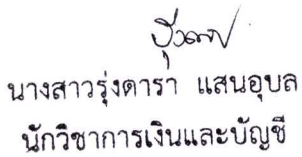 นางสาวรุ่งดารา แสนอุบล
นักวิชาการเงินและบัญชี